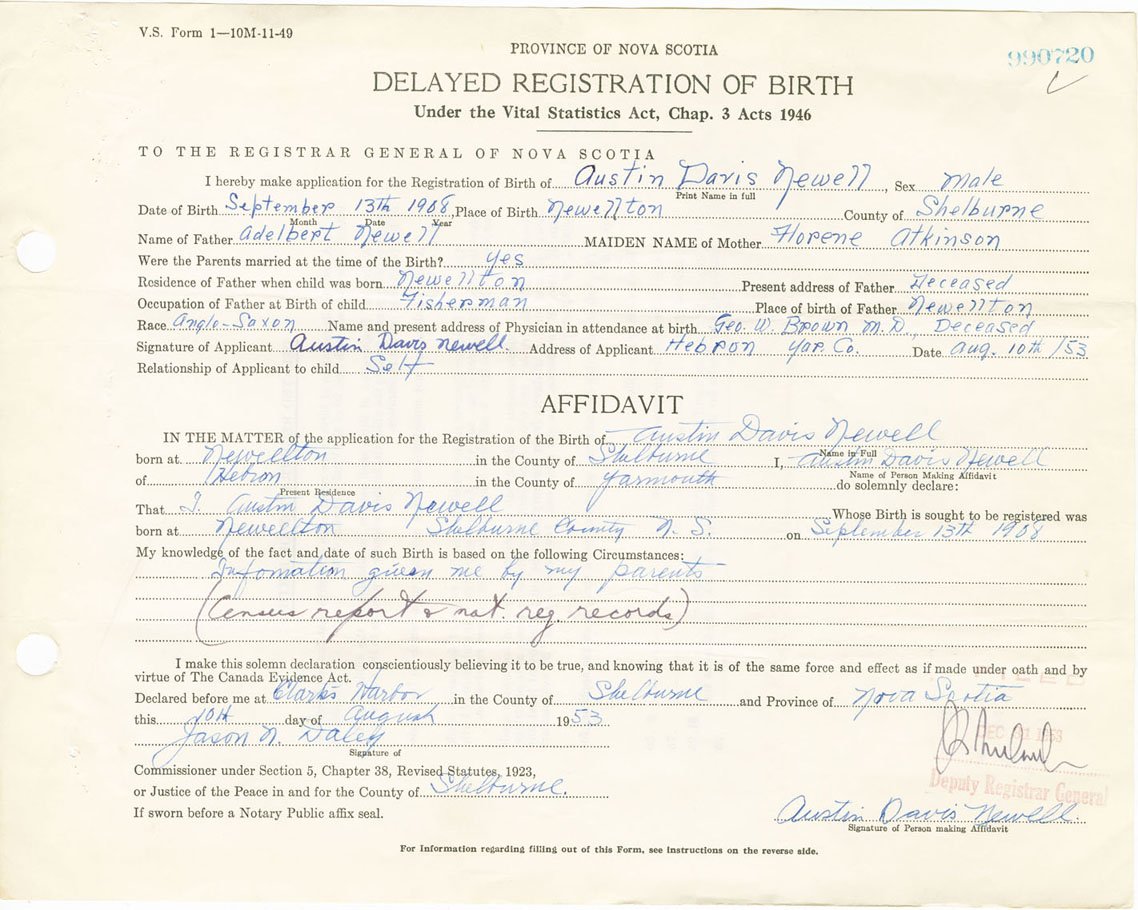 V.S. Form 1—10M-11-49
PROVINCE OF NOVA SCOTIA
990720
DELAYED REGISTRATION OF BIRTH
Under the Vital Statistics Act, Chap. 3 Acts 1946
TO THE REGISTRAR GENERAL OF NOVA SCOTIA
I hereby make application for the Registration of Birth of Austin Davis Newell, Sex Male
Print Name in full
Date of Birth September 13th 1908, Place of Birth Newellton County of Shelburne
Month Date Year
Name of Father Adelbert Newell MAIDEN NAME of Mother Florene Atkinson
Were the Parents married at the time of the Birth? yes
Residence of Father when child was born Newellton Present address of Father Deceased
Occupation of Father at Birth of child Fisherman Place of birth of Father Newellton
Race Anglo-Saxon Name and present address of Physician in attendance at birth Geo. W. Brown M.D., Deceased
Signature of Applicant Austin Davis Newell. Address of Applicant Hebron Yar. Co. Date Aug. 10th /53
Relationship of Applicant to child Self
AFFIDAVIT
IN THE MATTER of the application for the Registration of the Birth of Austin Davis Newell
Name in Full
born at Newellton in the County of Shelburne I, Austin Davis Newell
Name of Person Making Affidavit
of Hebron in the County of Yarmouth do solemnly declare:
Present Residence
That I. Austin Davis Newell Whose Birth is sought to be registered was
born at Newellton Shelburne County N. S. on September 13th 1908
My knowledge of the fact and date of such Birth is based on the following Circumstances:
Infomation given me by my parents
(Census report & nat. reg. records)
I make this solemn declaration conscientiously believing it to be true, and knowing that it is of the same force and effect as if made under oath and by
virtue of The Canada Evidence Act.
Declared before me at Clarks Harbor in the County of Shelburne and Province of Nova Scotia
this 10th day of August 1953
Jason N. Daley
Signature of
DEC 1953
Commissioner under Section 5, Chapter 38, Revised Statutes, 1923,
Deputy Registrar General
or Justice of the Peace in and for the County of Shelburne.
If sworn before a Notary Public affix seal.
Austin Davis Newell.
Signature of Person making Affidavit
For Information regarding filling out of this Form, see instructions on the reverse side.